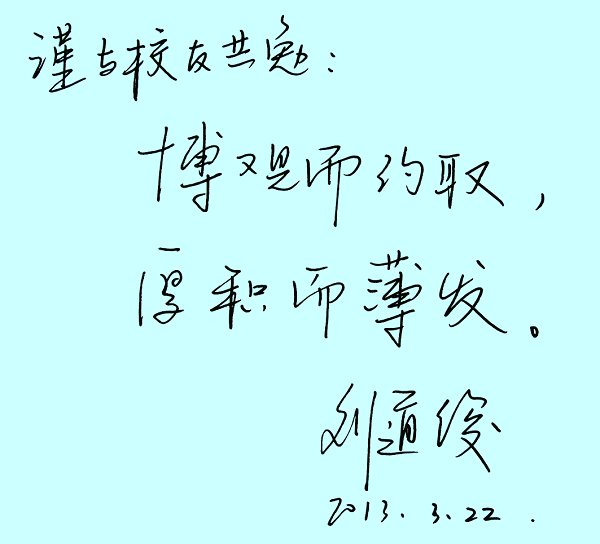 谨与校友共勉：
博观而约取，
厚积而薄发。
刘道俊
2013.3.22.